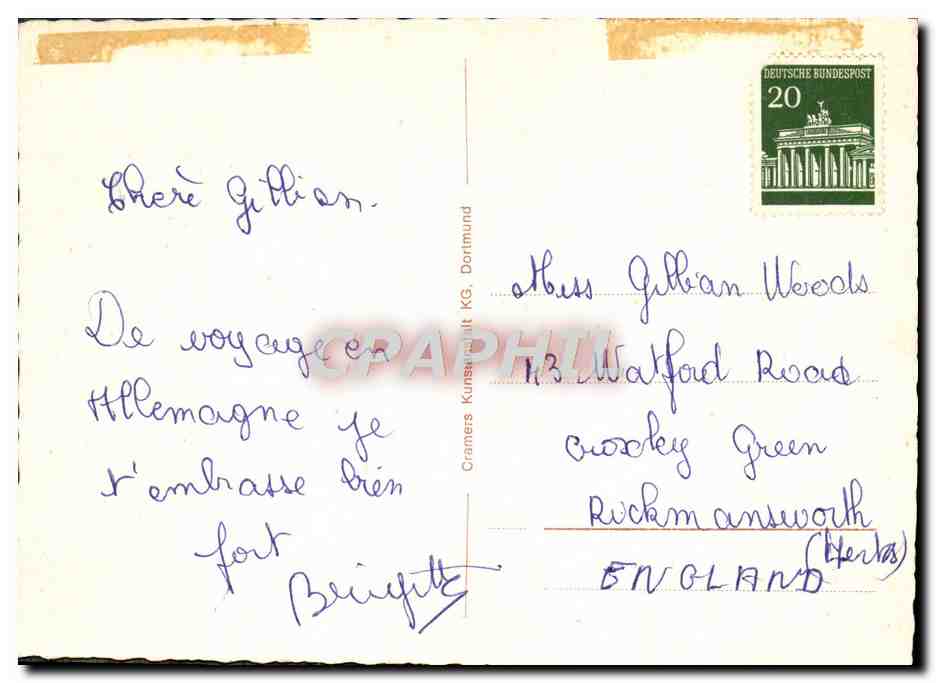 DEUTSCHE BUNDESPOST
20
Cherè Gillian.
De voyage en
Allemagne je
t'embrasse bien
fort
Brigitte
Cramers Kunstanstalt KG, Dortmund
CPAPHIL
Miss Gillian Woods
43 Watford Road
Croxley Green
Rickmansworth
(Herts)
ENGLAND